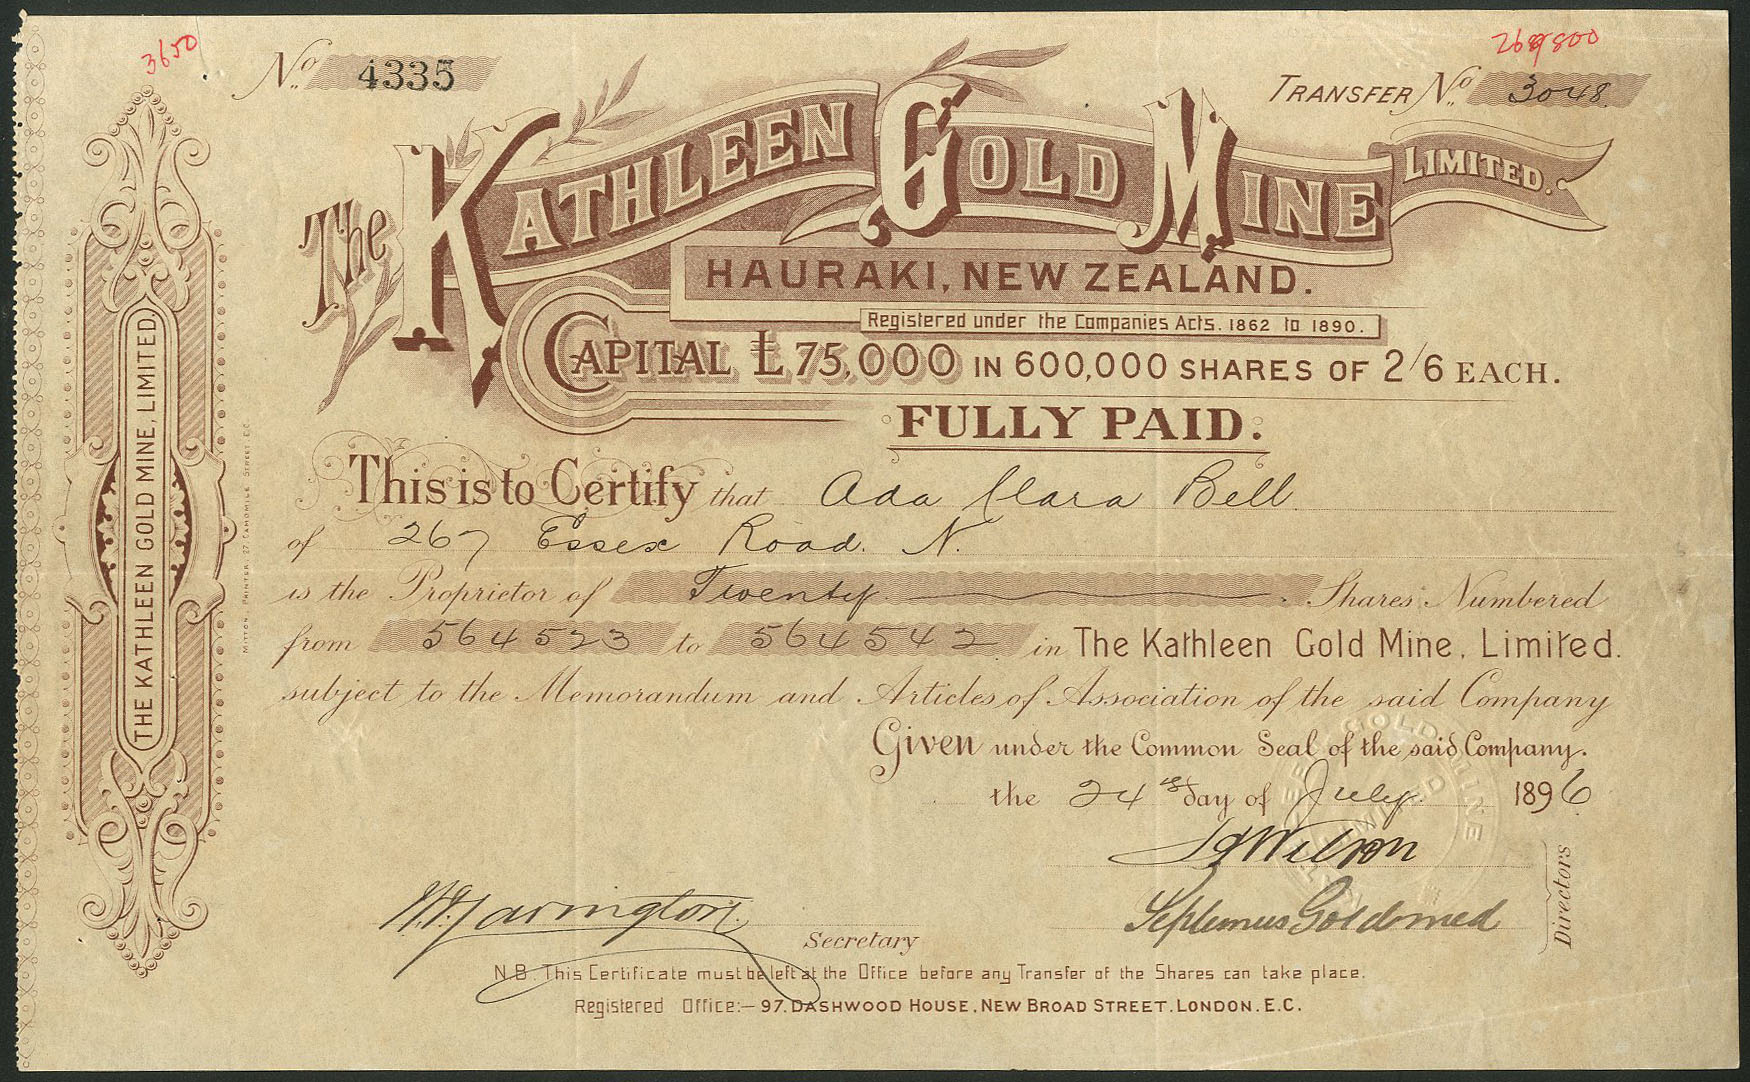 3650
268800
No. 4335
TRANSFER No. 3048.
The KATHLEEN GOLD MINE LIMITED.
HAURAKI, NEW ZEALAND.
Registered under the Companies Acts. 1862 to 1890.
CAPITAL £75,000 IN 600,000 SHARES OF 2/6 EACH.
FULLY PAID.
This is to Certify that Ada Clara Bell
of 267 Essex Road. N.
is the Proprietor of Twenty Shares Numbered
from 564523 to 564542 in The Kathleen Gold Mine, Limited.
subject to the Memorandum and Articles of Association of the said Company
Given under the Common Seal of the said Company.
the 24th day of July 1896
Wilson
Septimus
Directors
Secretary
N.B. This Certificate must be left at the Office before any Transfer of the Shares can take place.
Registered Office:— 97. DASHWOOD HOUSE, NEW BROAD STREET. LONDON. E.C.
THE KATHLEEN GOLD MINE, LIMITED
PRINTER, 27 CAMOMILE STREET E.C.
GOLD MINE
LIMITED